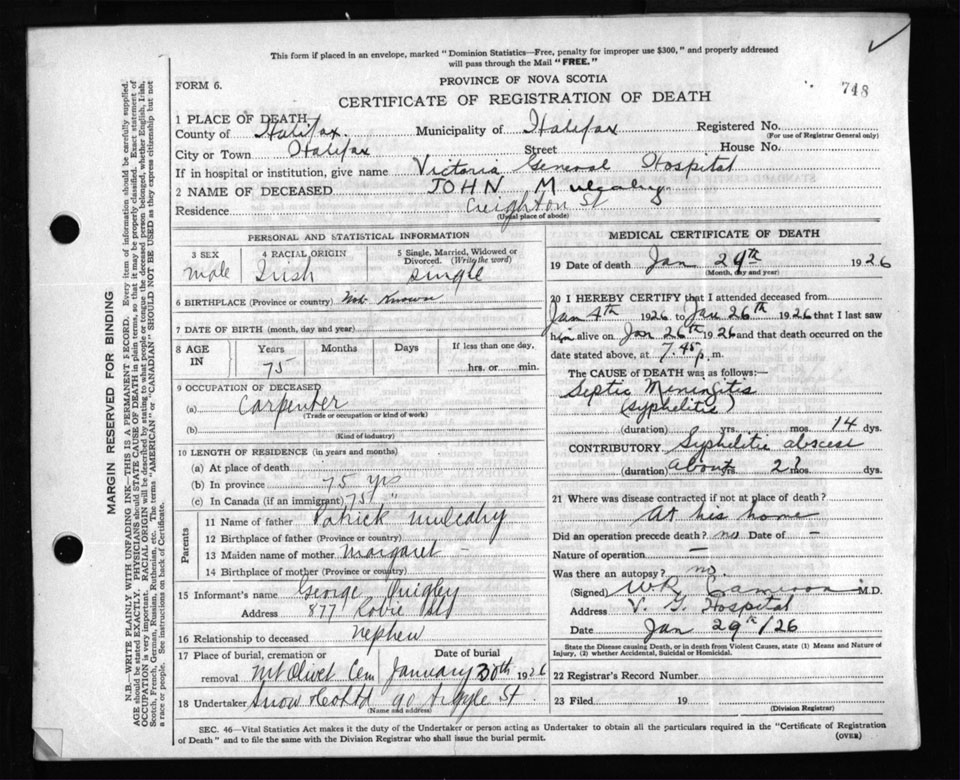 This form if placed in an envelope, marked "Dominion Statistics—Free, penalty for improper use $300," and properly addressed
will pass through the Mail "FREE."
748
FORM 6.
PROVINCE OF NOVA SCOTIA
CERTIFICATE OF REGISTRATION OF DEATH
1 PLACE OF DEATH
County of Halifax. Municipality of Halifax Registered No.
(For use of Registrar General only)
City or Town Halifax Street House No.
If in hospital or institution, give name Victoria General Hospital
2 NAME OF DECEASED JOHN Mulcahy
Residence Creighton St
(Usual place of abode)
PERSONAL AND STATISTICAL INFORMATION
3 SEX male
4 RACIAL ORIGIN Irish
5 Single, Married, Widowed or
Divorced. (Write the word)
single
6 BIRTHPLACE (Province or country) Not Known
7 DATE OF BIRTH (month, day and year)
8 AGE IN Years Months Days If less than one day,
75 hrs. or min.
9 OCCUPATION OF DECEASED
(a) Carpenter
(Trade or occupation or kind of work)
(b)
(Kind of industry)
10 LENGTH OF RESIDENCE (in years and months)
(a) At place of death
(b) In province 75 yrs
(c) In Canada (if an immigrant) 75 "
Parents
11 Name of father Patrick mulcahy
12 Birthplace of father (Province or country)
13 Maiden name of mother Margaret –
14 Birthplace of mother (Province or country)
15 Informant's name George Quigley
Address 877 Robie St
16 Relationship to deceased nephew
17 Place of burial, cremation or Date of burial
removal Mt Olivet Cem January 30th 1926
18 Undertaker Snow & Co Ltd 90 Argyle St.
(Name and address)
MEDICAL CERTIFICATE OF DEATH
19 Date of death Jan 29th 1926
(Month, day and year)
20 I HEREBY CERTIFY that I attended deceased from
Jan 4th 1926 to Jan 26th 1926 that I last saw
him alive on Jan 26th 1926 and that death occurred on the
date stated above, at 7.45 p. m.
The CAUSE of DEATH was as follows:—
Septic Meningitis
(syphilitic)
(duration) yrs. mos. 14 dys.
CONTRIBUTORY Syphilitic abscess
(duration) about yrs. 2 mos. dys.
21 Where was disease contracted if not at place of death?
At his home
Did an operation precede death? no Date of –
Nature of operation –
Was there an autopsy? no.
(Signed) M.D.
Address V. G. Hospital
Date Jan 29th/26
State the Disease causing Death, or in death from Violent Causes, state (1) Means and Nature of
Injury, (2) whether Accidental, Suicidal or Homicidal.
22 Registrar's Record Number
23 Filed 19
(Division Registrar)
SEC. 46—Vital Statistics Act makes it the duty of the Undertaker or person acting as Undertaker to obtain all the particulars required in the "Certificate of Registration
of Death" and to file the same with the Division Registrar who shall issue the burial permit.
(OVER)
MARGIN RESERVED FOR BINDING
N.B.—WRITE PLAINLY WITH UNFADING INK—THIS IS A PERMANENT RECORD. Every item of information should be carefully supplied.
AGE should be stated EXACTLY. PHYSICIANS should STATE CAUSE OF DEATH in plain terms, so that it may be properly classified. Exact statement of
OCCUPATION is very important. RACIAL ORIGIN will be described by stating to what people or tongue the deceased person belonged, whether English, Irish,
Scotch, French, German, Russian, Ruthenian, etc. The terms "AMERICAN" or "CANADIAN" SHOULD NOT BE USED as they express citizenship but not
a race or people. See instructions on back of Certificate.